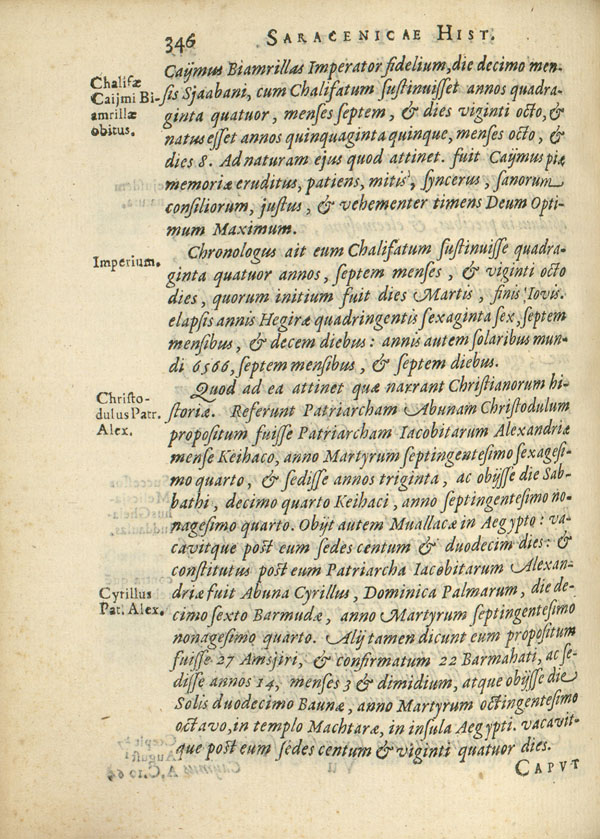 346 SARACENICAE HIST.
Chalifæ
Caijmi Bi-
amrillæ
obitus.
Caijmus Biamrillas Imperator fidelium, die decimo men-
sis Sjaabani, cum Chalifatum sustinuisset annos quadra-
ginta quatuor, menses septem, & dies viginti octo, &
natus esset annos quinquaginta quinque, menses octo, &
dies 8. Ad naturam ejus quod attinet. fuit Caijmus piæ
memoriæ eruditus, patiens, mitis, syncerus, sanorum
consiliorum, justus, & vehementer timens Deum Opti-
mum Maximum.
Imperium.
Chronologus ait eum Chalifatum sustinuisse quadra-
ginta quatuor annos, septem menses, & viginti octo
dies, quorum initium fuit dies Martis, finis Iovis.
elapsis annis Hegiræ quadringentis sexaginta sex, septem
mensibus, & decem diebus: annis autem solaribus mun-
di 6566, septem mensibus, & septem diebus.
Christo-
dulus Patr.
Alex.
Quod ad ea attinet quæ narrant Christianorum hi-
storiæ. Referunt Patriarcham Abunam Christodulum
propositum fuisse Patriarcham Iacobitarum Alexandriæ
mense Keihaco, anno Martyrum septingentesimo sexagesi-
mo quarto, & sedisse annos triginta, ac obijsse die Sab-
bathi, decimo quarto Keihaci, anno septingentesimo no-
nagesimo quarto. Obijt autem Muallacæ in Aegypto: va-
cavitque post eum sedes centum & duodecim dies: &
constitutus post eum Patriarcha Iacobitarum Alexan-
Cyrillus
Pat. Alex.
driæ fuit Abuna Cyrillus, Dominica Palmarum, die de-
cimo sexto Barmudæ, anno Martyrum septingentesimo
nonagesimo quarto. Alij tamen dicunt eum propositum
fuisse 27 Amsjiri, & confirmatum 22 Barmahati, ac se-
disse annos 14, menses 3 & dimidium, atque obijsse die
Solis duodecimo Baunæ, anno Martyrum octingentesimo
octavo, in templo Machtaræ, in insula Aegypti. vacavit-
que post eum sedes centum & viginti quatuor dies.
CAPVT